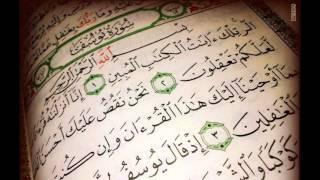 وَمَا رَبُّكَ بِغَٰفِلٍ
سُورَةُ يُوسُفَ
بِسْمِ اللَّهِ الرَّحْمَٰنِ الرَّحِيمِ
الٓر تِلْكَ ءَايَٰتُ الْكِتَٰبِ الْمُبِينِ ١ إِنَّآ أَنزَلْنَٰ
لَّعَلَّكُمْ تَعْقِلُونَ ٢ نَحْنُ نَقُصُّ عَلَيْكَ أَحْسَنَ
بِمَآ أَوْحَيْنَآ إِلَيْكَ هَٰذَا الْقُرْءَانَ وَإِن كُنتَ
الْغَٰفِلِينَ ٣ إِذْ قَالَ يُوسُفُ
كَوْكَبًا وَالشَّمْسَ